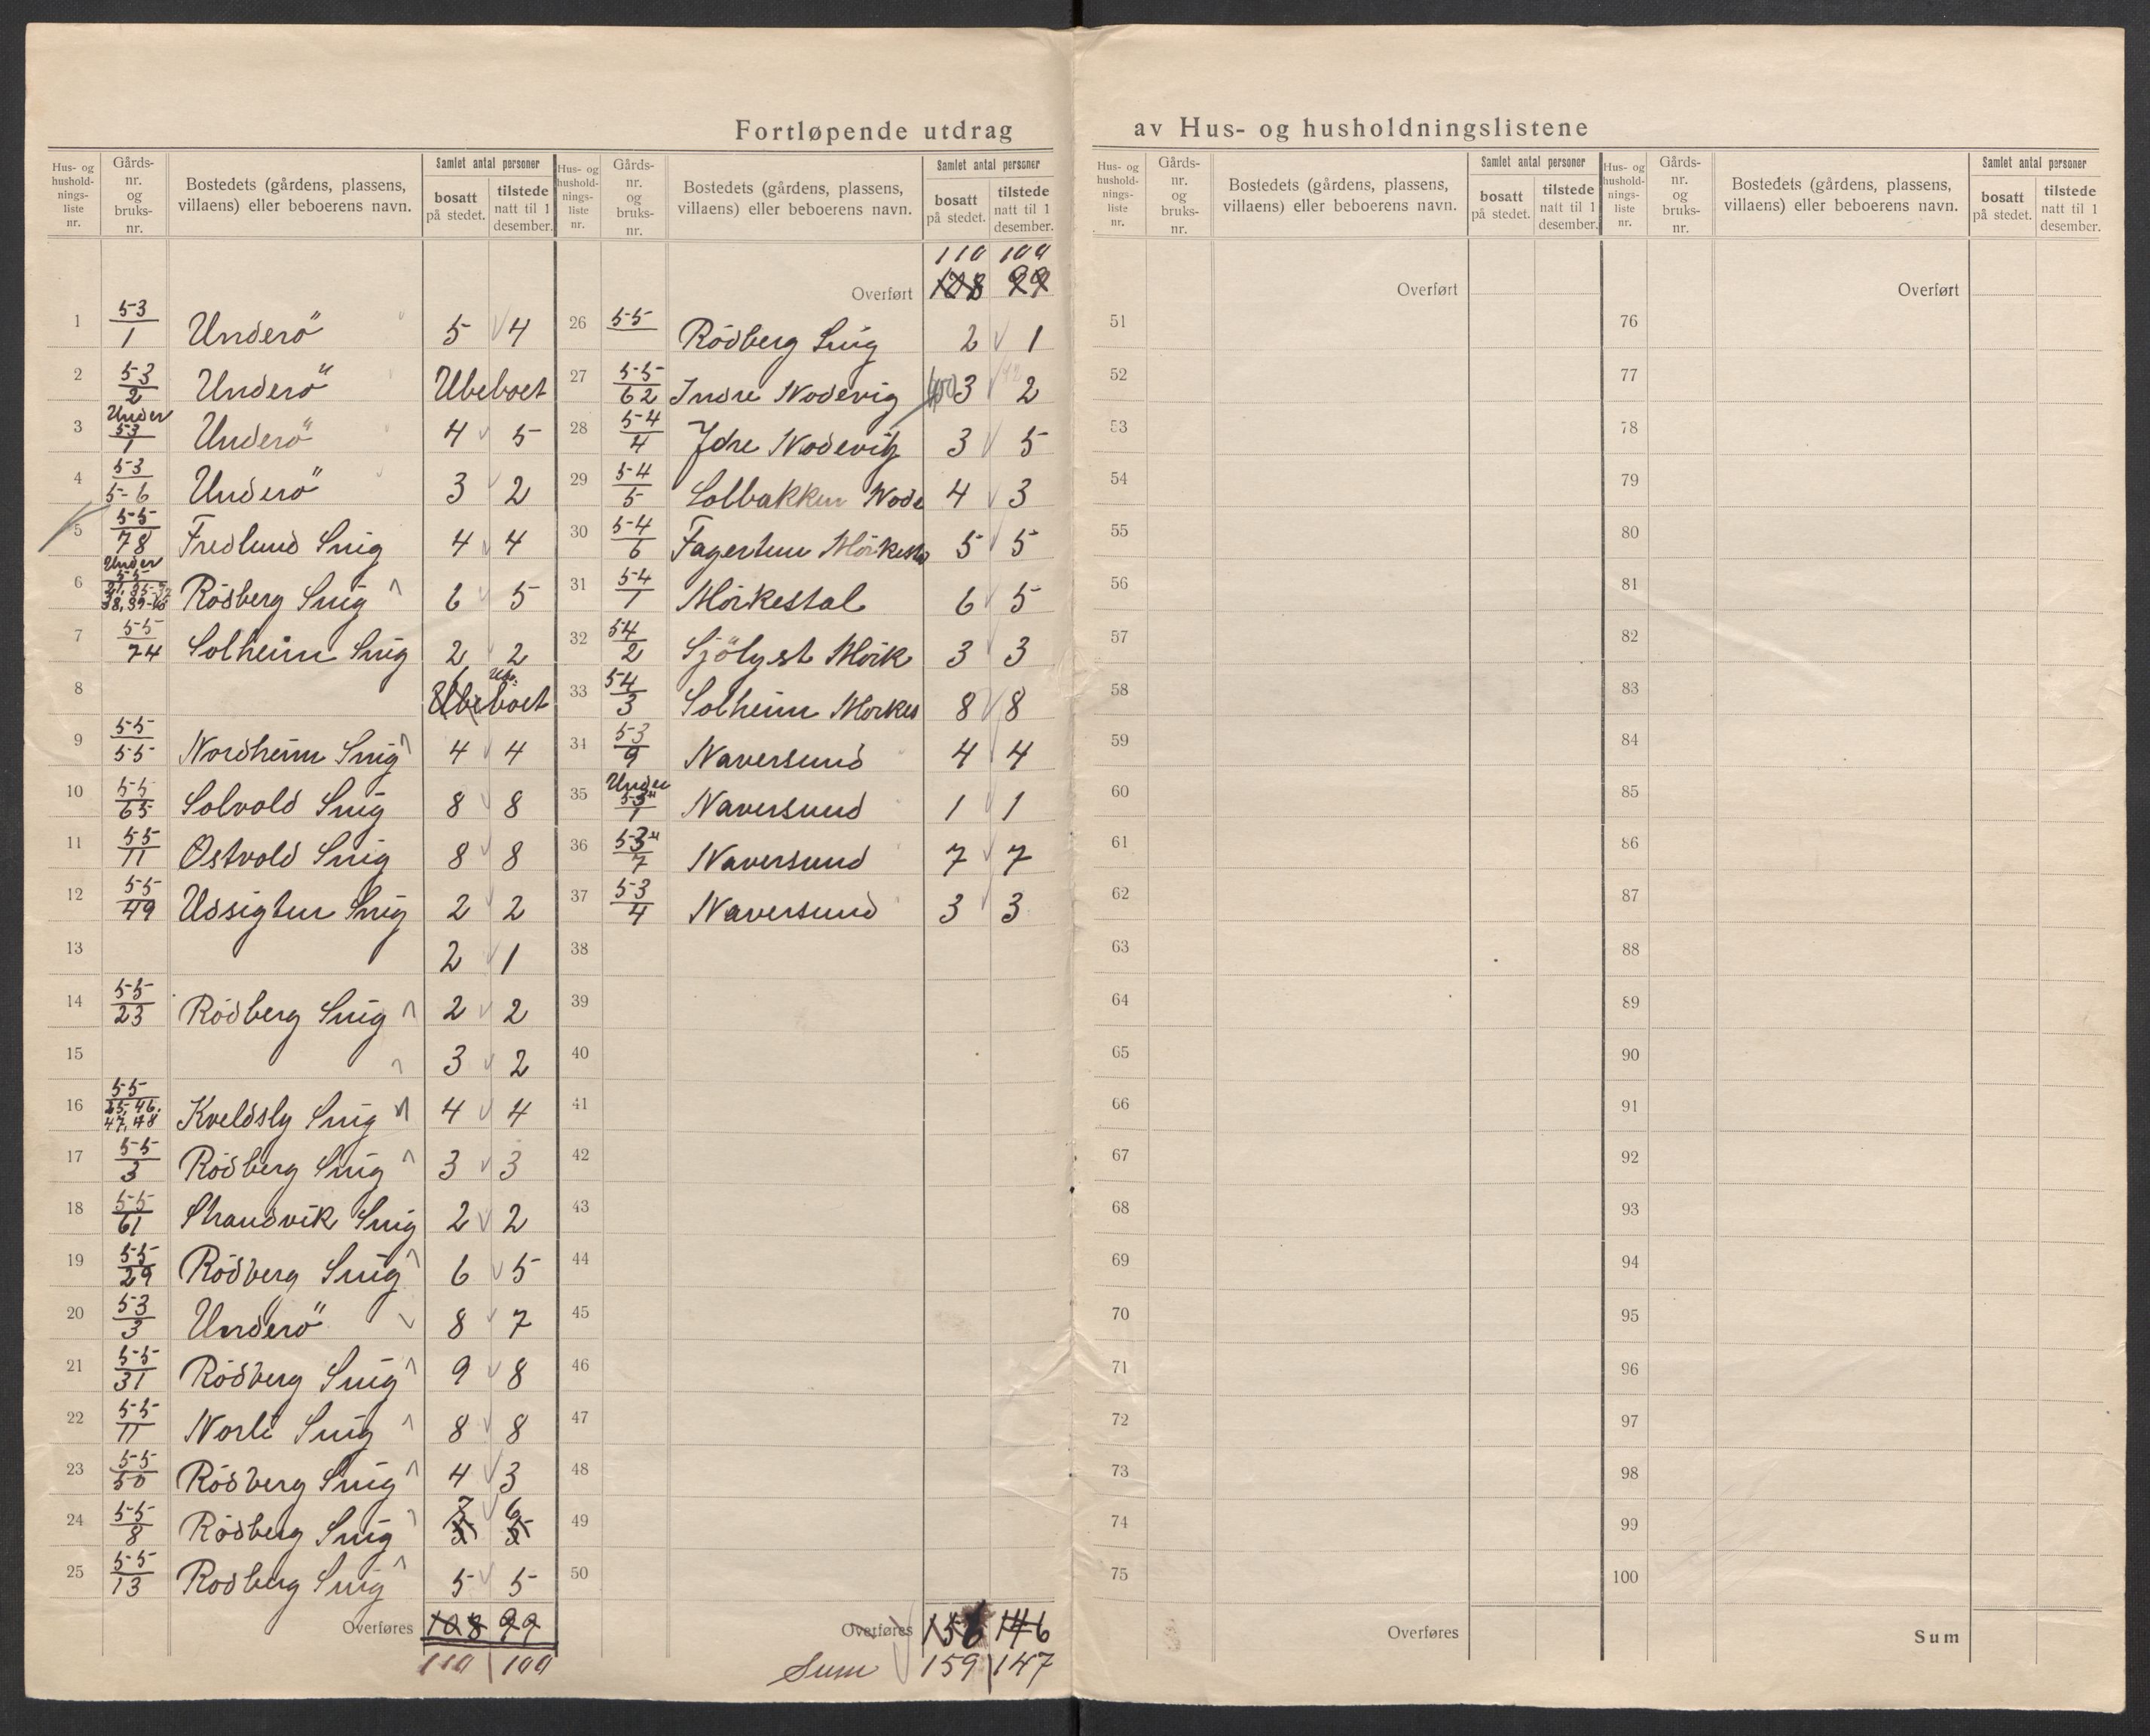 Fortløpende utdrag av Hus- og husholdningslistene
Hus- og hushold-nings-liste nr. Gårds-nr. og bruks-nr. Bostedets (gårdens, plassens, villaens) eller beboerens navn. Samlet antal personer bosatt på stedet. tilstede natt til 1 desember.
1 53/1 Underö 5 4
2 53/2 Underö Ubeboet
3 Under 53/1 Underö 4 5
4 53/5-6 Underö 3 2
5 55/78 Fredlund Snig 4 4
6 Under 55 Rödberg Snig 6 5
7 55/74 Solheim Snig 2 2
8 Ubeboet
9 55/55 Nordheim Snig 4 4
10 55/65 Solvold Snig 8 8
11 55/11 Östvold Snig 8 8
12 55/49 Udsigten Snig 2 2
13 2 1
14 55/23 Rödberg Snig 2 2
15 3 2
16 55/25, 46, 47, 48 Kveldsly Snig 4 4
17 55/3 Rödberg Snig 3 3
18 55/61 Strandvik Snig 2 2
19 55/29 Rödberg Snig 6 5
20 53/3 Underö 8 7
21 55/31 Rödberg Snig 9 8
22 55/11 Norli Snig 8 8
23 55/50 Rödberg Snig 4 3
24 55/8 Rödberg Snig 7 6
25 55/13 Rödberg Snig 5 5
Overføres 108 99
110 100
Hus- og hushold-nings-liste nr. Gårds-nr. og bruks-nr. Bostedets (gårdens, plassens, villaens) eller beboerens navn. Samlet antal personer bosatt på stedet. tilstede natt til 1 desember.
110 100
Overført 108 99
26 55 Rödberg Snig 2 1
27 55/62 Indre Nodevig 3 2
28 54/4 Jdre Nodevig 3 5
29 54/5 Solbakken Node 4 3
30 54/6 Fagertun Mörkesta 5 5
31 54/1 Mörkestal 6 5
32 54/2 Sjölyst Mörk 3 3
33 54/3 Solheim Morkes 8 8
34 53/9 Naversund 4 4
35 Under 53/1 Naversund 1 1
36 53/7 Naversund 7 7
37 53/4 Naversund 3 3
38
39
40
41
42
43
44
45
46
47
48
49
50
Overføres 158 146
Sum 159 147
Hus- og hushold-nings-liste nr. Gårds-nr. og bruks-nr. Bostedets (gårdens, plassens, villaens) eller beboerens navn. Samlet antal personer bosatt på stedet. tilstede natt til 1 desember.
Overført
51
52
53
54
55
56
57
58
59
60
61
62
63
64
65
66
67
68
69
70
71
72
73
74
75
Overføres
Hus- og hushold-nings-liste nr. Gårds-nr. og bruks-nr. Bostedets (gårdens, plassens, villaens) eller beboerens navn. Samlet antal personer bosatt på stedet. tilstede natt til 1 desember.
Overført
76
77
78
79
80
81
82
83
84
85
86
87
88
89
90
91
92
93
94
95
96
97
98
99
100
Sum